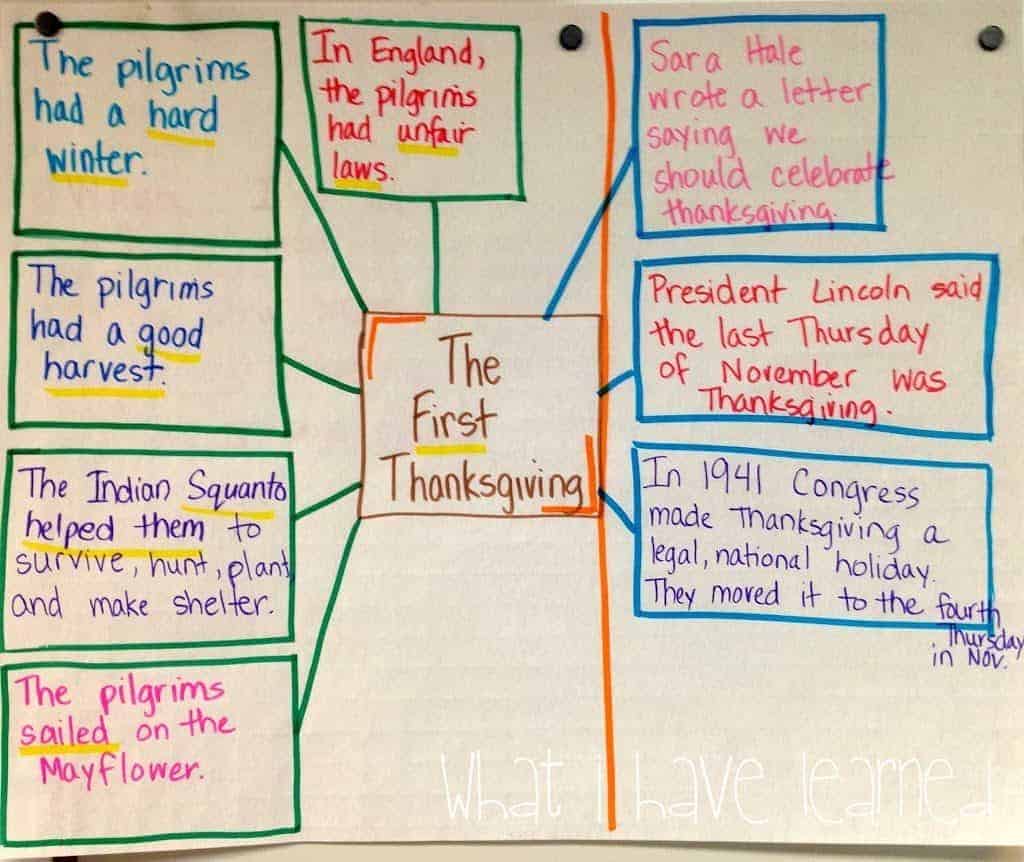 The pilgrims
had a hard
winter.
In England,
the pilgrims
had unfair
laws.
Sara Hale
wrote a letter
saying we
should celebrate
thanksgiving.
The pilgrims
had a good
harvest.
President Lincoln said
the last Thursday
of November was
Thanksgiving.
The
First
Thanksgiving
The Indian Squanto
helped them to
survive, hunt, plant
and make shelter.
In 1941 Congress
made Thanksgiving a
legal, national holiday.
They moved it to the fourth
Thursday
in Nov.
The pilgrims
sailed on the
Mayflower.
what i have learned